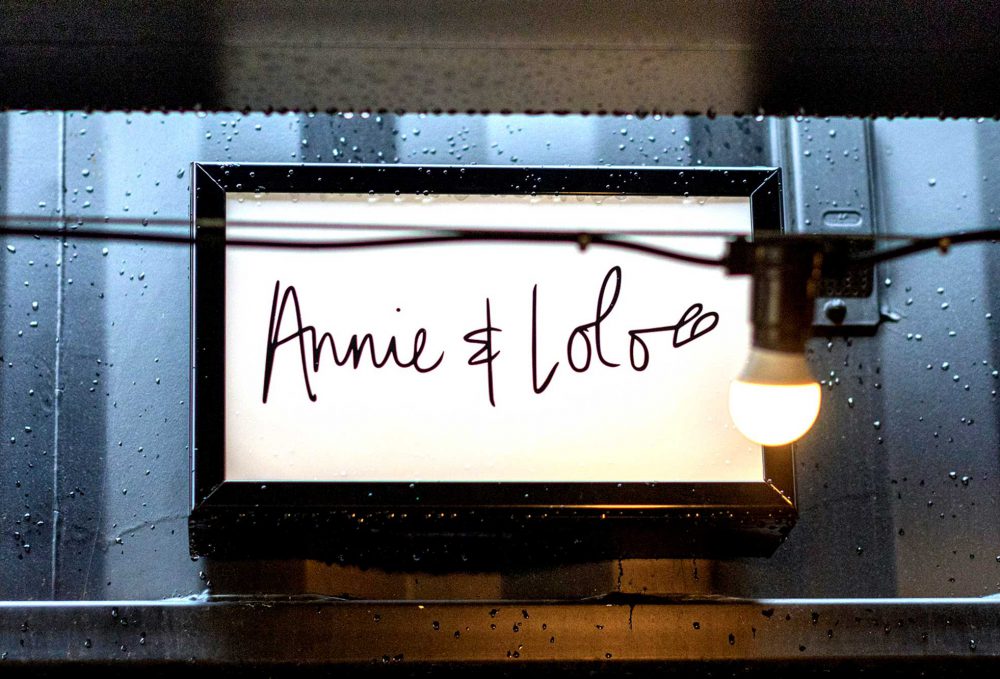 Annie & Lolo